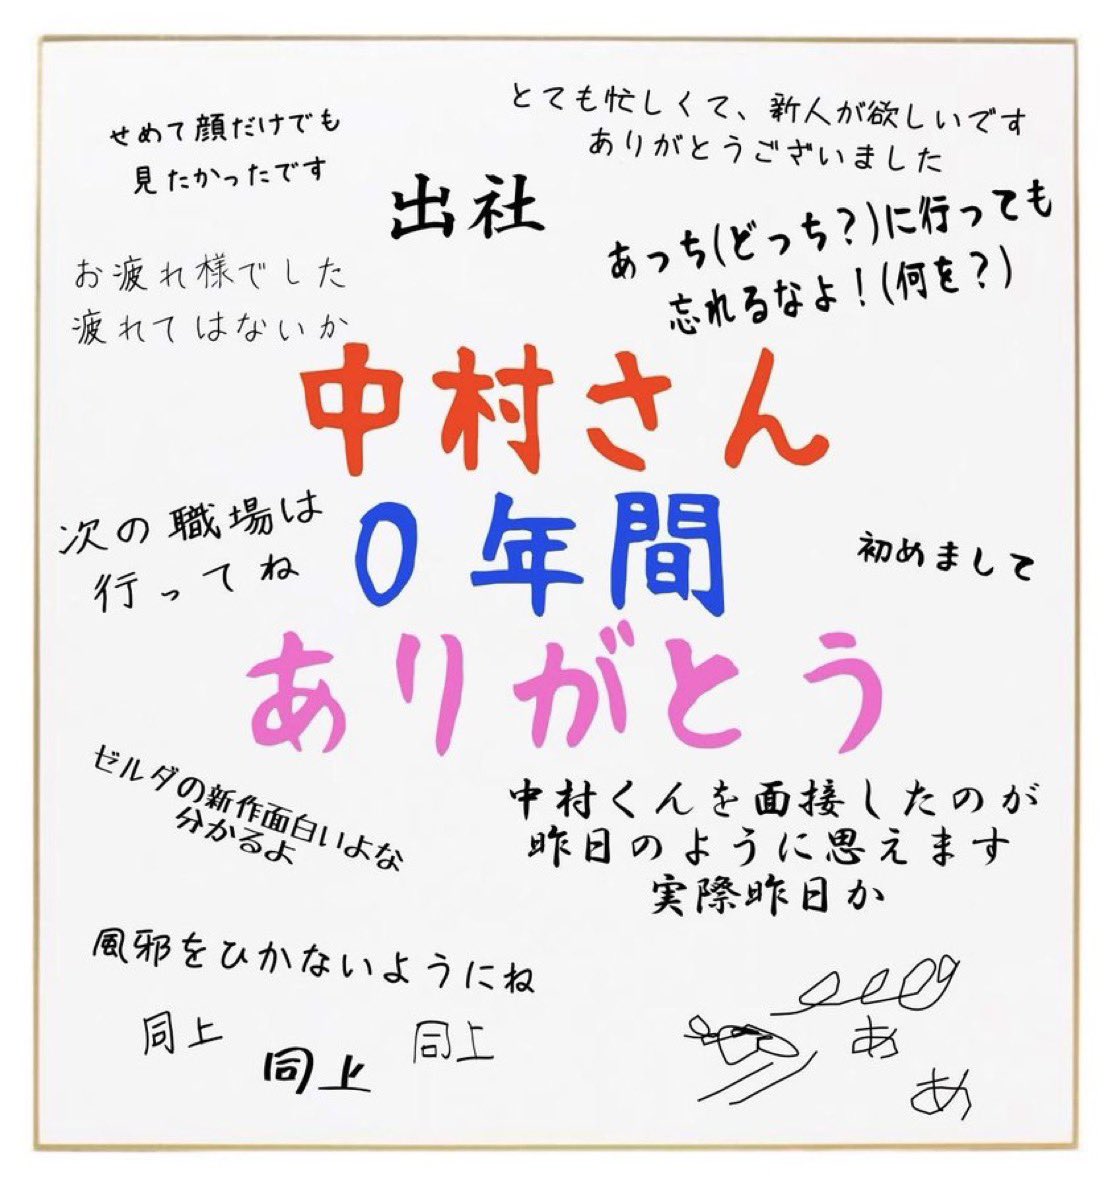 せめて顔だけでも
見たかったです
とても忙しくて、新人が欲しいです
ありがとうございました
出社
あっち(どっち？)に行っても
忘れるなよ！(何を？)
お疲れ様でした
疲れてはないか
中村さん
0年間
ありがとう
次の職場は
行ってね
初めまして
ゼルダの新作面白いよな
分かるよ
中村くんを面接したのが
昨日のように思えます
実際昨日か
風邪をひかないようにね
同上
同上
同上
あ
あ